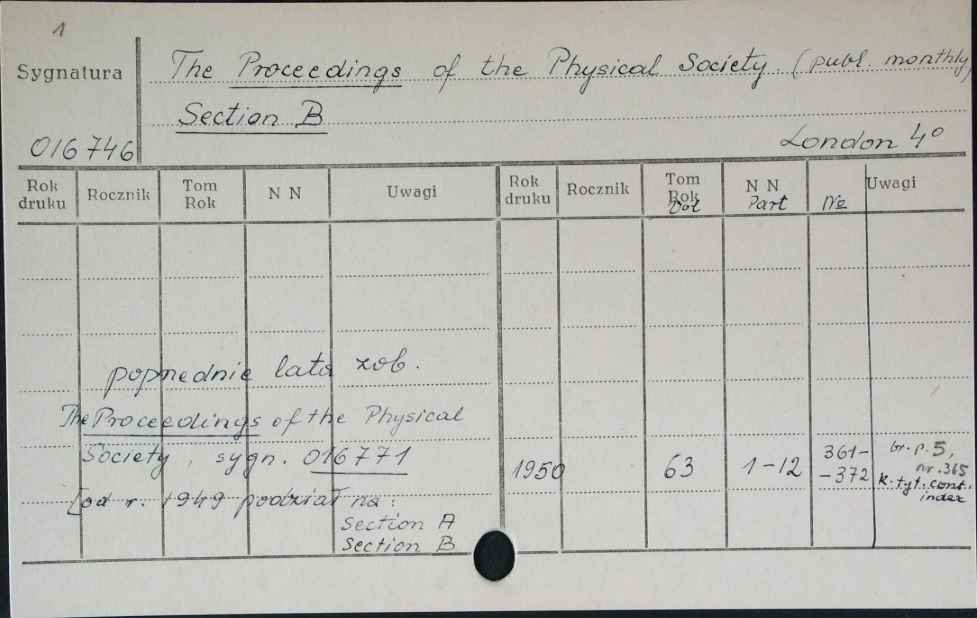 1
Sygnatura
The Proceedings of the Physical Society (publ. monthly)
Section B
016746
London 4°
Rok druku Rocznik Tom Rok N N Uwagi Rok druku Rocznik Tom Rok Vol N N Part № Uwagi
poprzednie lata zob.
The Proceedings of the Physical
Society, sygn. 016771
[od r. 1949 podział na:
Section A
Section B
1950 63 1-12 361-
-372
br. p. 5,
nr. 365
k. tyt. cont.
index